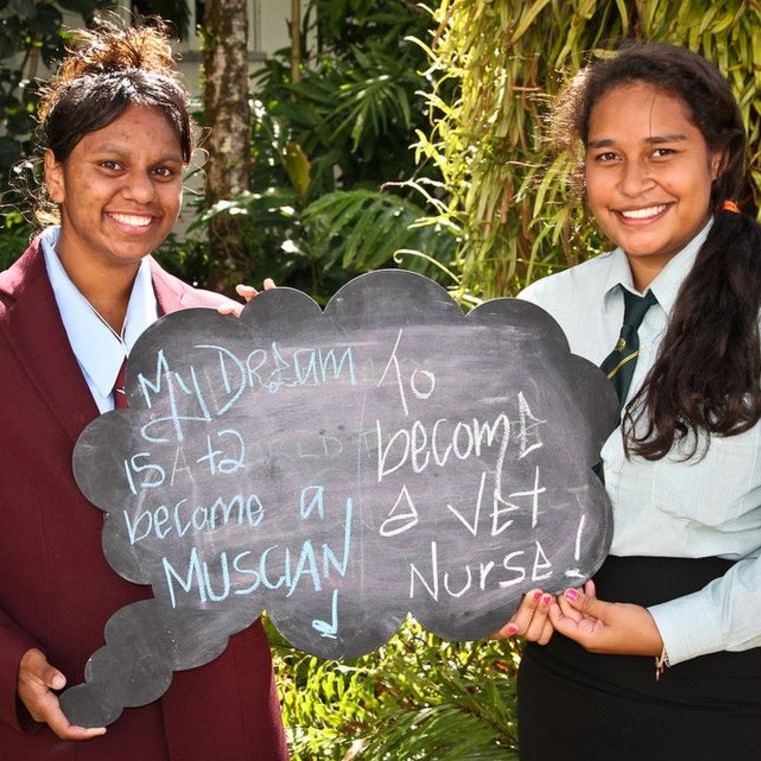 My Dream
is to
become a
MUSCIAN
To
become
a Vet
Nurse!